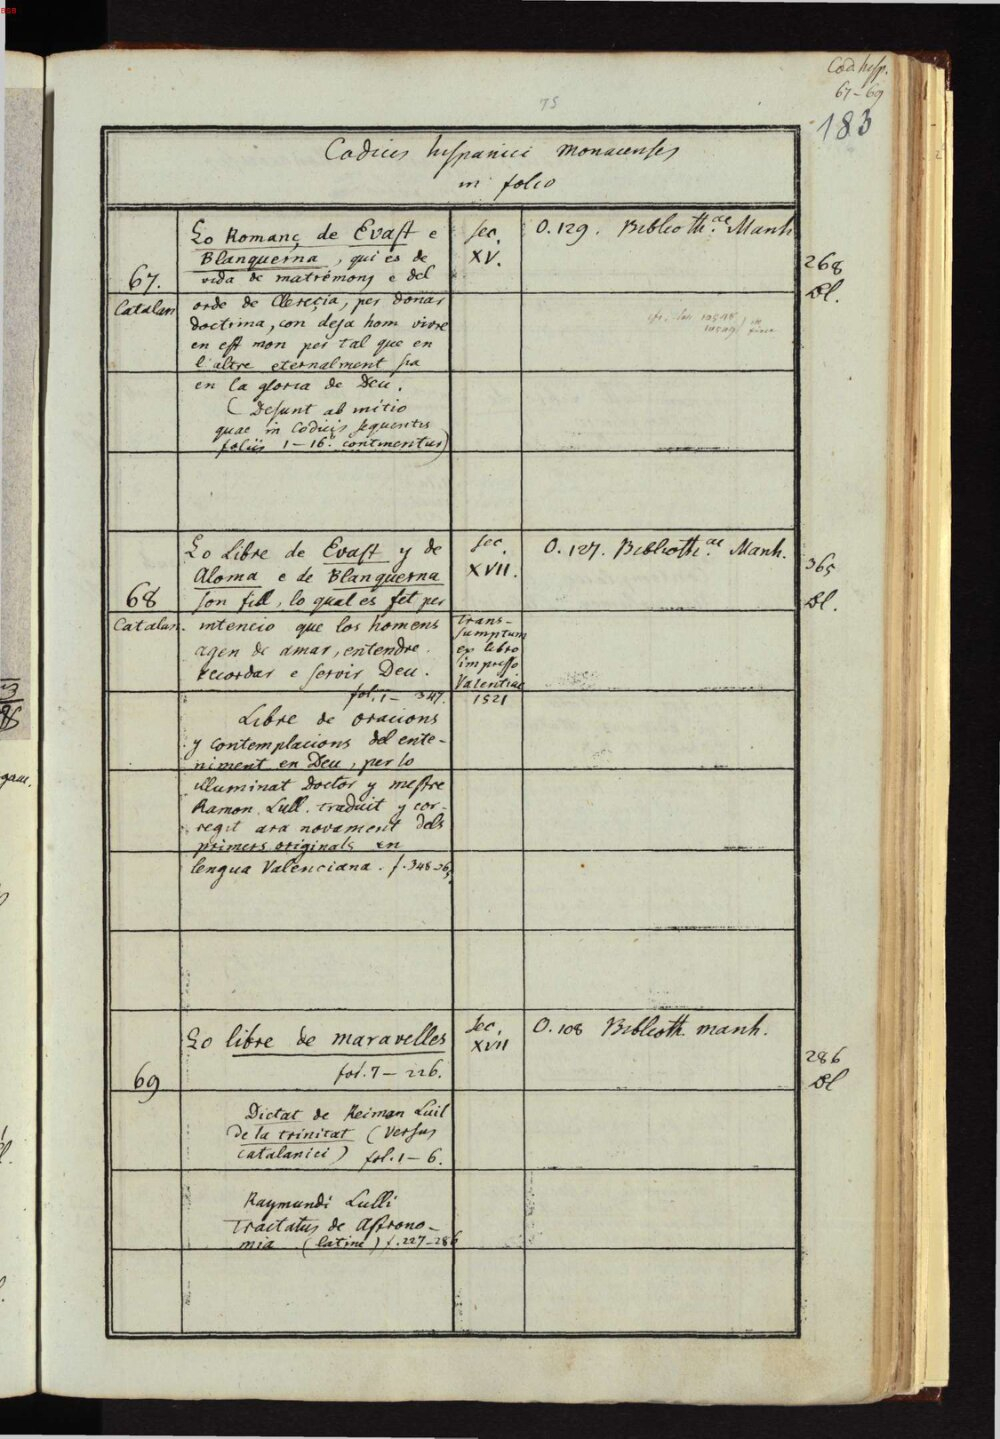 Cod. hisp.
67-69
183
75
Codices hispanici monacenses
in folio
67.
Catalan
Lo Romanç de Evast e
Blanquerna, qui es de
vida de matrémonj e del
orde de Clerecia, per donar
doctrina, con deja hom vivre
en est mon per tal que en
l'altre eternalment sia
en la gloria de Deu.
(Desunt ab initio
quae in Codicis sequentis
foliis 1-16. continentur)
sec.
XV.
O. 129. Biblioth.ae Manh.
268
Bl.
cfr. lat. 10548
10549 in fine
68
Catalan.
Lo Libre de Evast y de
Aloma e de Blanquerna
son fill, lo qual es fet per
intencio que los homens
agen de amar, entendre
recordar e servir Deu.
fol. 1-347.
Libre de oracions
y contemplacions del ente-
niment en Deu, per lo
illuminat Doctor y mestre
Ramon Lull. traduit y cor-
regit ara novament dels
primers originals en
lengua Valenciana. f. 348-365
sec.
XVII.
Trans-
sumptum
ex libro
impresso
Valentiae
1521
O. 127. Biblioth.ae Manh.
365
Bl.
69
Lo libre de maravelles
fol. 7-226.
Dictat de Reiman Luil
de la trinitat (versus
catalanici) fol. 1-6.
Raymundi Lulli
Tractatus de Astrono-
mia (latine) f. 227-286
sec.
XVII
O. 108 Biblioth. manh.
286
Bl